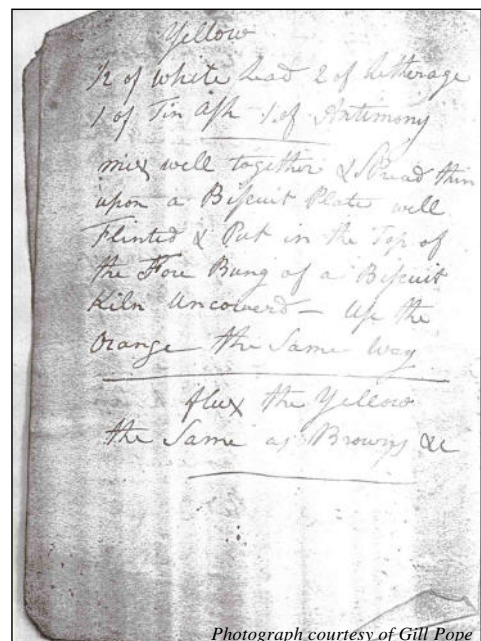 Yellow
1/2 of white Lead 2 of Letherage
1 of Tin Ash 1 of Antimony
mix well together & Spread thin
upon a Biscuit Plate well
Flinted & Put in the Top of
the Fore Bung of a Biscuit
Kiln Uncoverd – Use the
Orange the Same Way
flux the Yellow
the Same as Browns &c
Photograph courtesy of Gill Pope